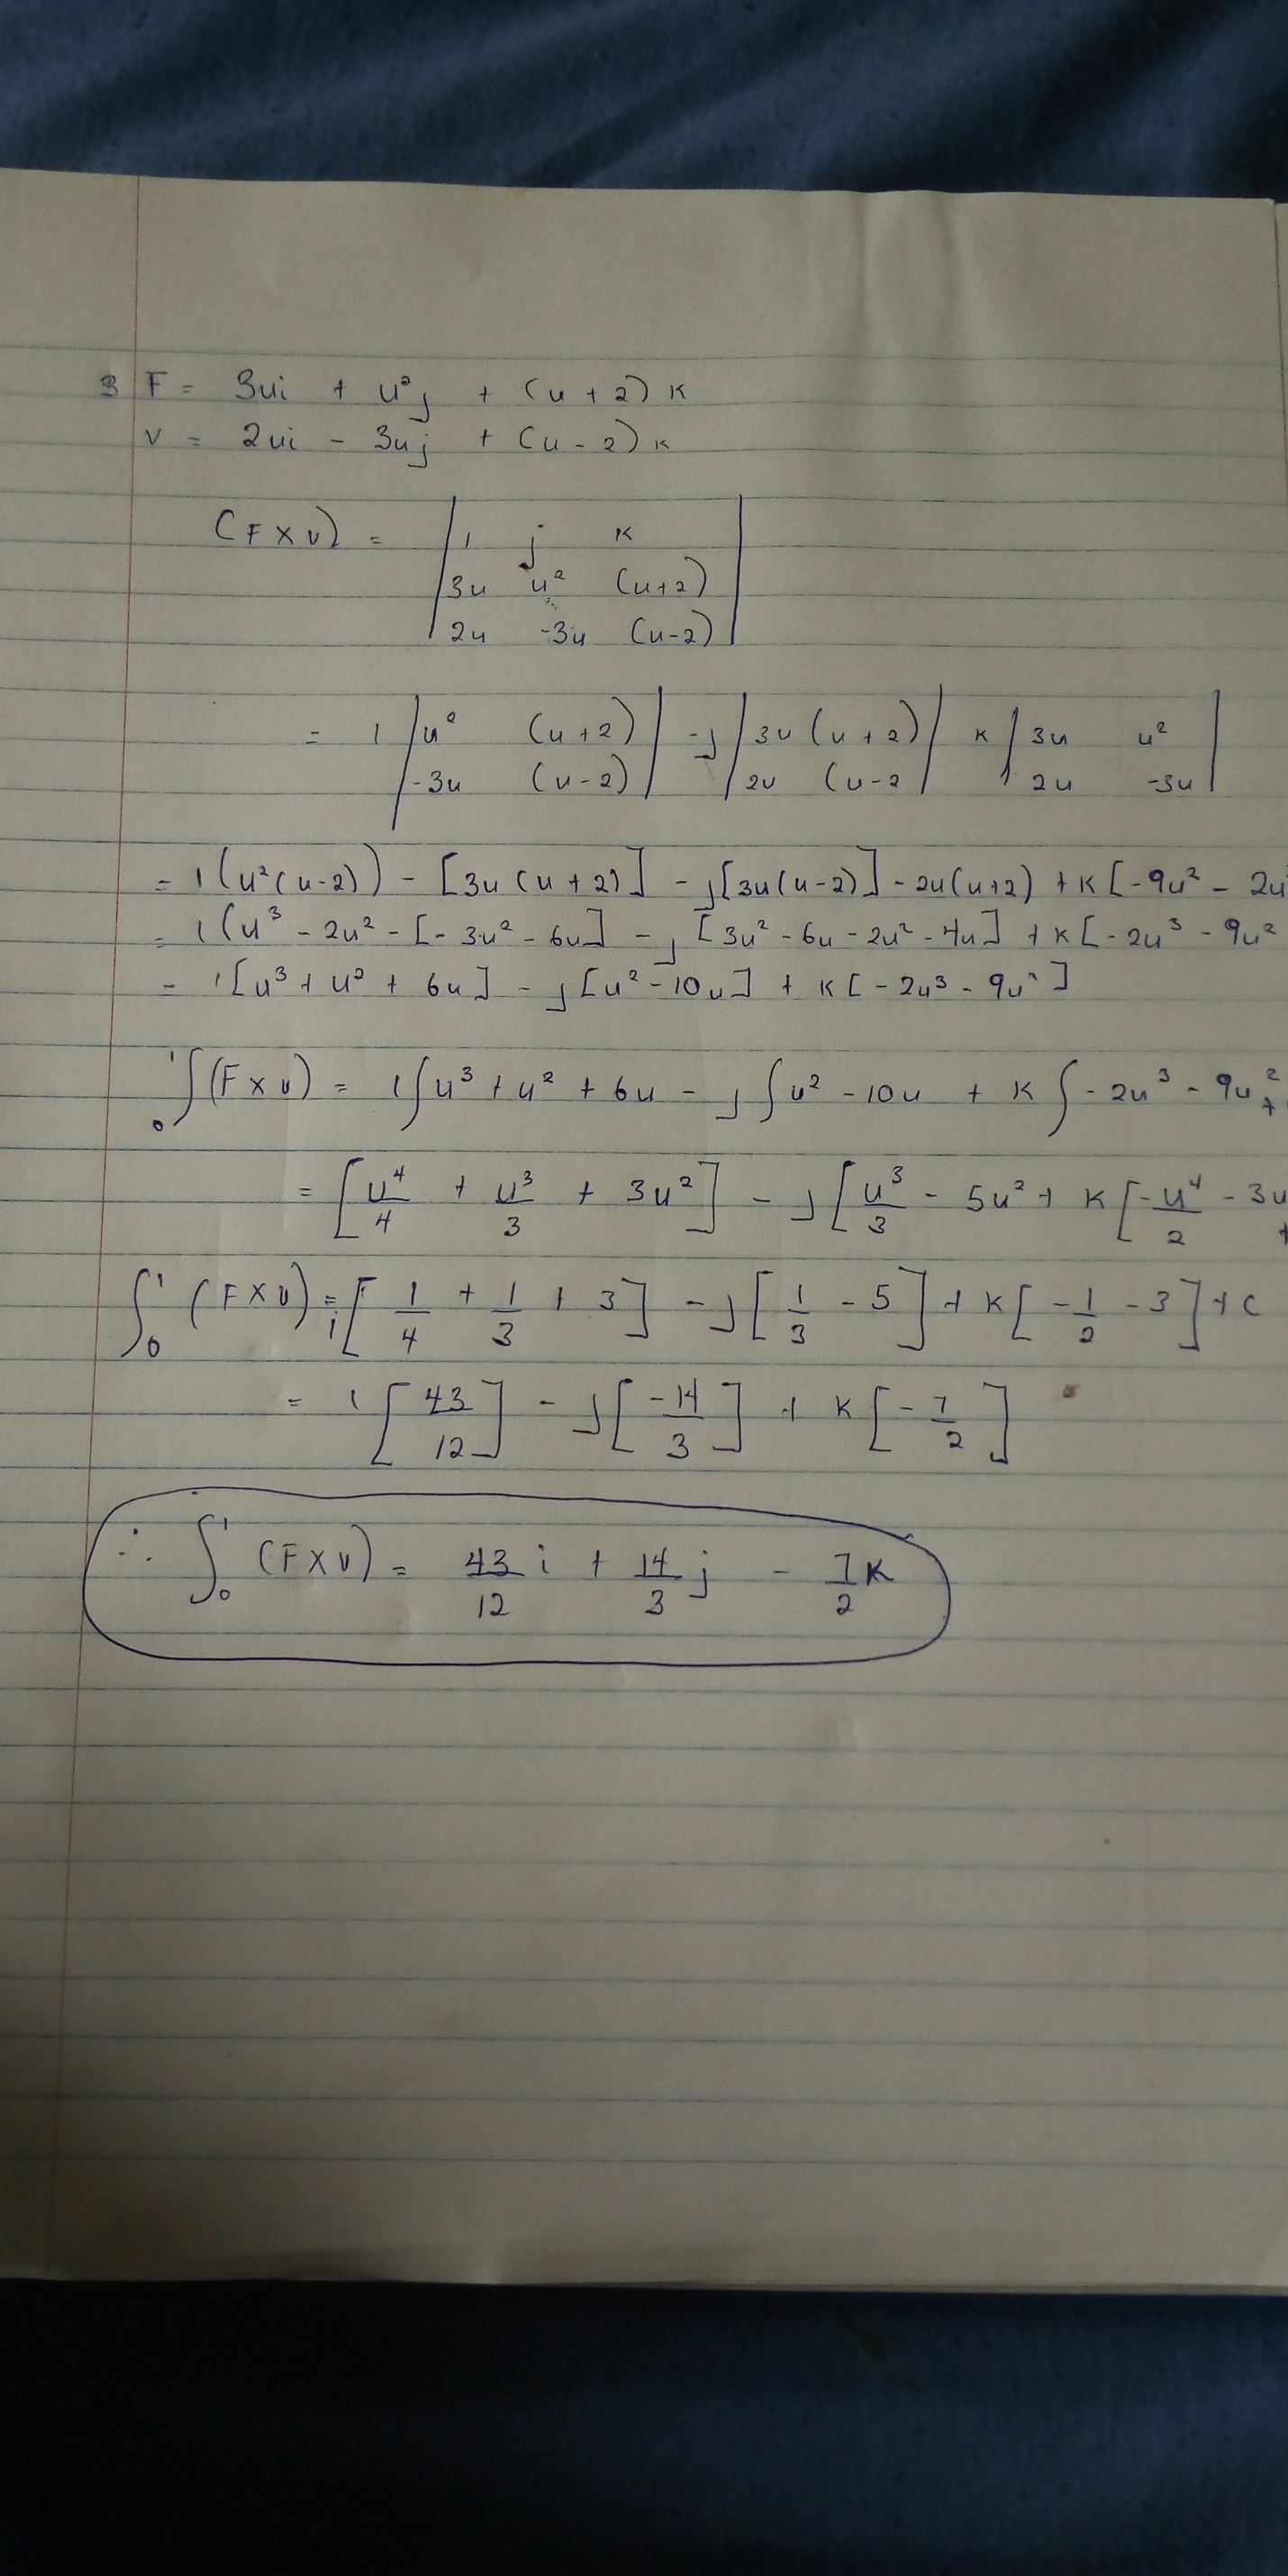 3 F = 3ui + u²j + (u + 2) k
V = 2ui - 3uj + (u - 2) k
(F x v) = | i j k |
| 3u u² (u+2) |
| 2u -3u (u-2) |
= i | u² (u + 2) | - j | 3u (u + 2) | k | 3u u² |
| -3u (u - 2) | | 2u (u - 2 | | 2u -3u |
= i (u²(u-2)) - [3u (u + 2)] - j [3u(u-2)] - 2u(u+2) + k [-9u² - 2u
= i (u³ - 2u² - [- 3u² - 6u] - j [3u² - 6u - 2u² - 4u] + k [-2u³ - 9u²
= i [u³ + u² + 6u] - j [u² - 10u] + k [- 2u³ - 9u²]
₀¹∫ (F x v) = i ∫ u³ + u² + 6u - j ∫ u² - 10u + k ∫ - 2u³ - 9u² +
= [u⁴/4 + u³/3 + 3u²] - j [u³/3 - 5u² + k [-u⁴/2 - 3u +
∫₀¹ (F x v) = i [1/4 + 1/3 + 3] - j [1/3 - 5] + k [-1/2 - 3] + c
= i [43/12] - j [-14/3] + k [-7/2]
∴ ∫₀¹ (F x v) = 43/12 i + 14/3 j - 7/2 k